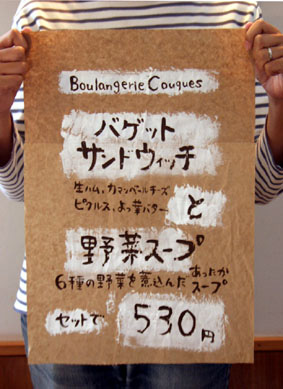 Boulangerie Couques
バゲット
サンドウィッチ
生ハム、カマンベールチーズ
ピクルス、よつ葉バター
と
野菜スープ
6種の野菜を煮込んだ
あったか
スープ
セットで
530円